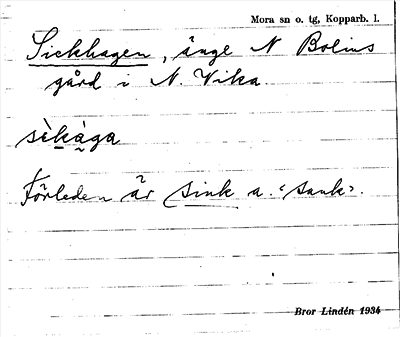 Mora sn o. tg, Kopparb. l.
Sickhagen, änge N Bolins
gård i N. Vika.
sèkàga
Förleden är sink a. ‹sank›.
Bror Lindén 1934